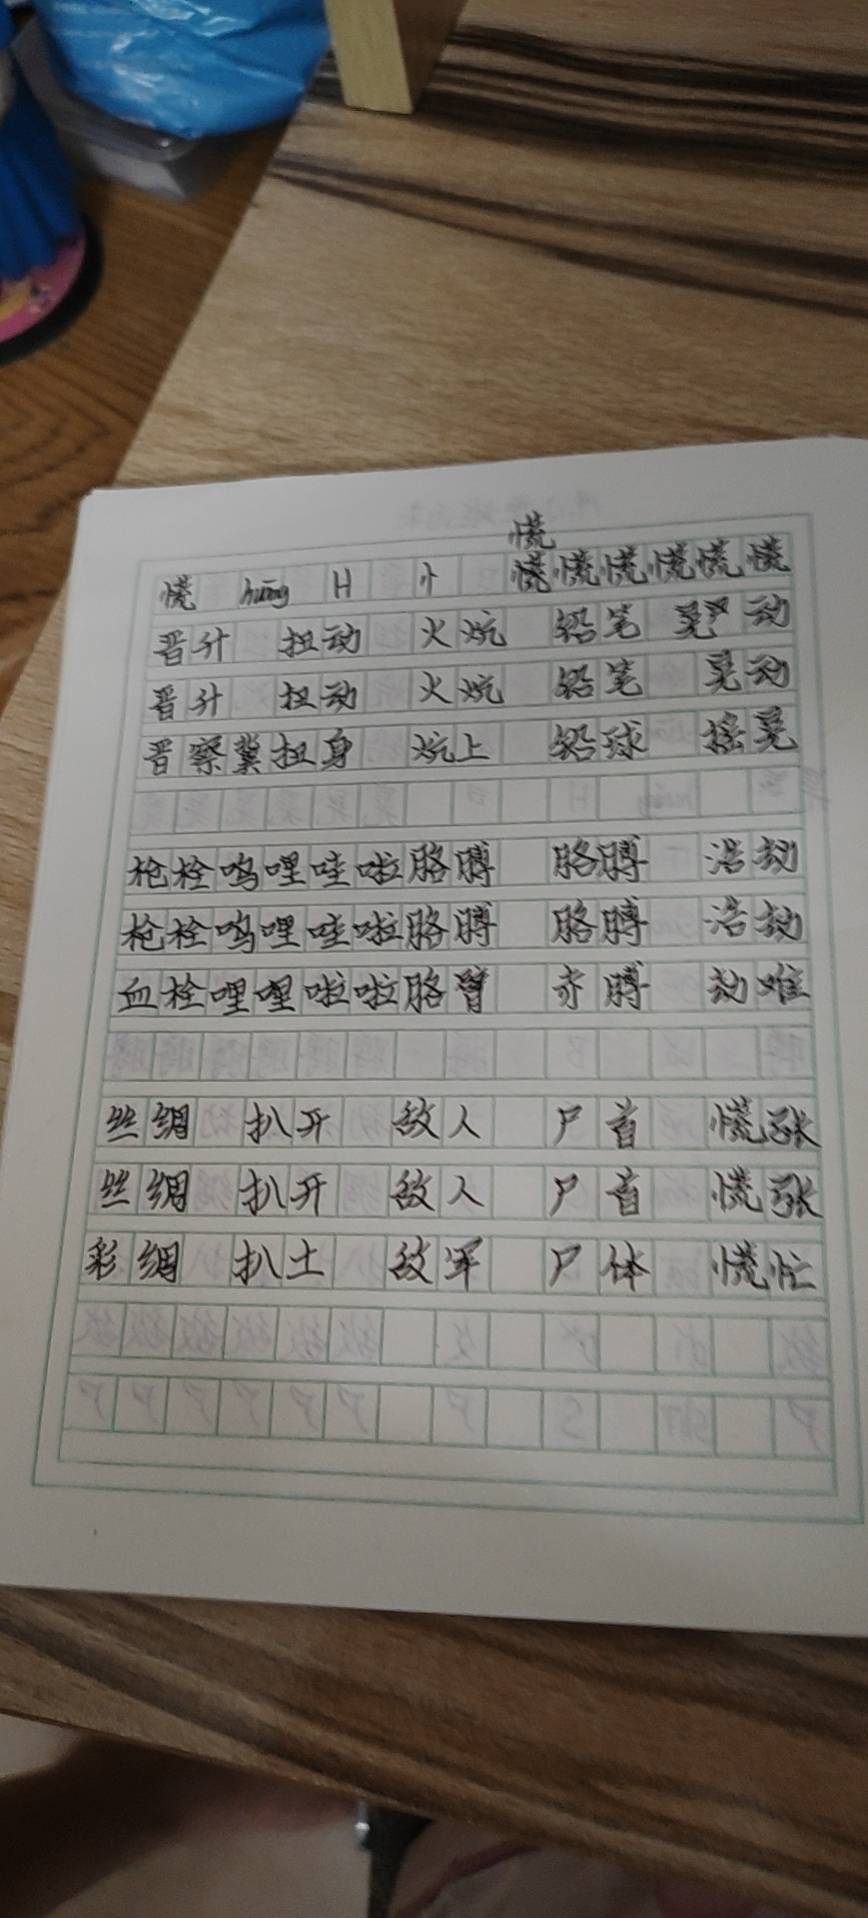 慌
慌 huāng H 忄 慌慌慌慌慌慌
晋升 扭动 火炕 铅笔 晃动
晋升 扭动 火炕 铅笔 晃动
晋察冀扭身 炕上 铅球 摇晃
枪栓呜哩哇啦胳膊 胳膊 浩劫
枪栓呜哩哇啦胳膊 胳膊 浩劫
血栓哩哩啦啦胳臂 赤膊 劫难
丝绸 扒开 敌人 尸首 慌张
丝绸 扒开 敌人 尸首 慌张
彩绸 扒土 敌军 尸体 慌忙